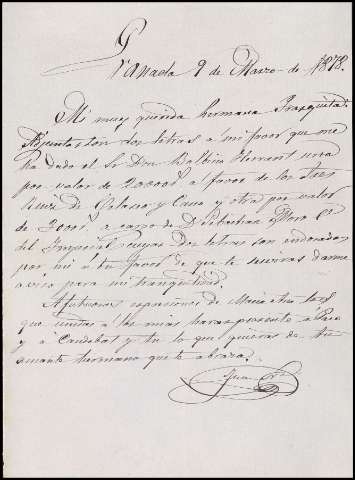 9 de Marzo de 1878.
Mi muy querida hermana Frasquita:
Adjunta son dos letras á mi favor que me
ha dado el Sr Dn Balbino una
por valor de á favor de los Sres
Ruiz de Palacio y Cª y otra por valor
de á cargo de Dn Sebastian
del Imperial cuyas dos letras son endosadas
por mi á tu favor de que te serviras darme
aviso para mi tranquilidad.
Afectuosas espresiones de Maria
que unidas á las mias haras presente á Paco
y á Candebat y tu lo que quieras de tu
amante hermano que te abraza.
Juan